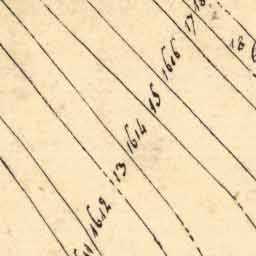 11
1612
13
1614
15
1616
17
18
18